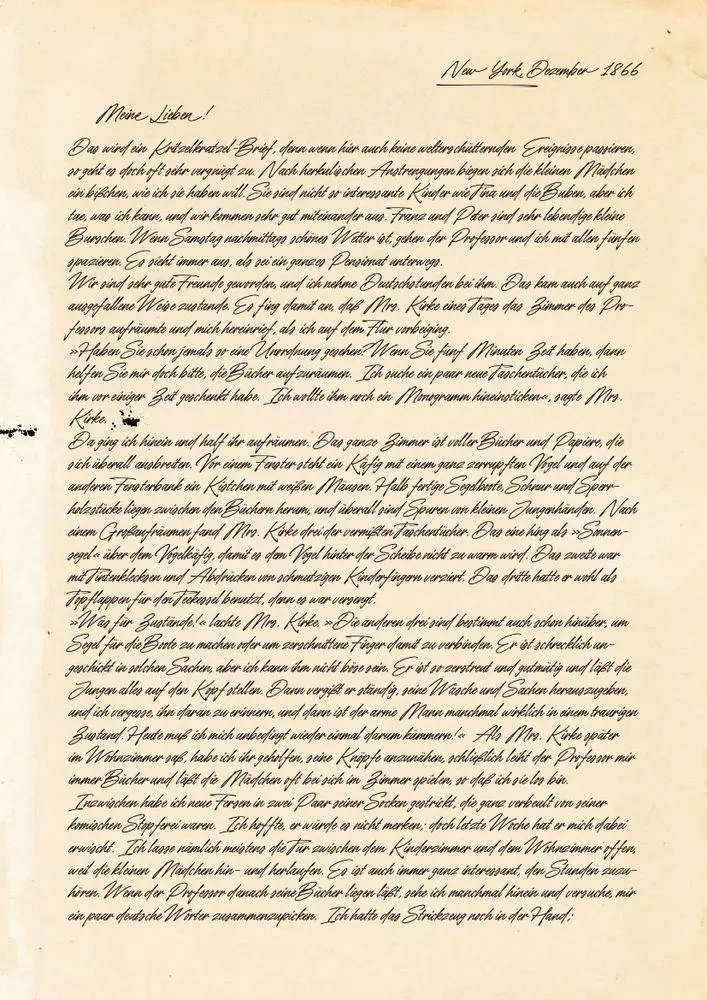 New York, Dezember 1866
Meine Lieben!
Das wird ein Kritzelkratzel-Brief, denn wenn hier auch keine welterschütternden Ereignisse passieren,
so geht es doch oft sehr vergnügt zu. Nach herkulischen Anstrengungen biegen sich die kleinen Mädchen
ein bißchen, wie ich sie haben will. Sie sind nicht so interessante Kinder wie Tina und die Buben, aber ich
tue, was ich kann, und wir kommen sehr gut miteinander aus. Franz und Peter sind sehr lebendige kleine
Burschen. Wenn Samstag nachmittags schönes Wetter ist, gehen der Professor und ich mit allen fünfen
spazieren. Es sieht immer aus, als sei ein ganzes Pensionat unterwegs.
Wir sind sehr gute Freunde geworden, und ich nehme Deutschstunden bei ihm. Das kam auch auf ganz
ausgefallene Weise zustande. Es fing damit an, daß Mrs. Kirke eines Tages das Zimmer des Pro-
fessors aufräumte und mich hereinrief, als ich auf dem Flur vorbeiging.
»Haben Sie schon jemals so eine Unordnung gesehen? Wenn Sie fünf Minuten Zeit haben, dann
helfen Sie mir doch bitte, die Bücher aufzuräumen. Ich suche ein paar neue Taschentücher, die ich
ihm vor einiger Zeit geschenkt habe. Ich wollte ihm noch ein Monogramm hineinsticken«, sagte Mrs.
Kirke.
Da ging ich hinein und half ihr aufräumen. Das ganze Zimmer ist voller Bücher und Papiere, die
sich überall ausbreiten. Vor einem Fenster steht ein Käfig mit einem ganz zerrupften Vogel und auf der
anderen Fensterbank ein Kistchen mit weißen Mäusen. Halb fertige Segelboote, Schnur und Sperr-
holzstücke liegen zwischen den Büchern herum, und überall sind Spuren von kleinen Jungenhänden. Nach
einem Großaufräumen fand Mrs. Kirke drei der vermißten Taschentücher. Das eine hing als »Sonnen-
segel« über dem Vogelkäfig, damit es dem Vogel hinter der Scheibe nicht zu warm wird. Das zweite war
mit Tintenklecksen und Abdrücken von schmutzigen Kinderfingern verziert. Das dritte hatte er wohl als
Topflappen für den Teekessel benutzt, denn es war versengt.
»Was für Zustände!« lachte Mrs. Kirke. »Die anderen drei sind bestimmt auch schon hinüber, um
Segel für die Boote zu machen oder um zerschnittene Finger damit zu verbinden. Er ist schrecklich un-
geschickt in solchen Sachen, aber ich kann ihm nicht böse sein. Er ist so zerstreut und gutmütig und läßt die
Jungen alles auf den Kopf stellen. Dann vergißt er ständig, seine Wäsche und Sachen herauszugeben,
und ich vergesse, ihn daran zu erinnern, und dann ist der arme Mann manchmal wirklich in einem traurigen
Zustand. Heute muß ich mich unbedingt wieder einmal darum kümmern!« Als Mrs. Kirke später
im Wohnzimmer saß, habe ich ihr geholfen, seine Knöpfe anzunähen, schließlich leiht der Professor mir
immer Bücher und läßt die Mädchen oft bei sich im Zimmer spielen, so daß ich sie los bin.
Inzwischen habe ich neue Fersen in zwei Paar seiner Socken gestrickt, die ganz verbeult von seiner
komischen Stopferei waren. Ich hoffte, er würde es nicht merken; doch letzte Woche hat er mich dabei
erwischt. Ich lasse nämlich meistens die Tür zwischen dem Kinderzimmer und dem Wohnzimmer offen,
weil die kleinen Mädchen hin- und herlaufen. Es ist auch immer ganz interessant, den Stunden zuzu-
hören. Wenn der Professor danach seine Bücher liegen läßt, sehe ich manchmal hinein und versuche, mir
ein paar deutsche Wörter zusammenzupicken. Ich hatte das Strickzeug noch in der Hand;